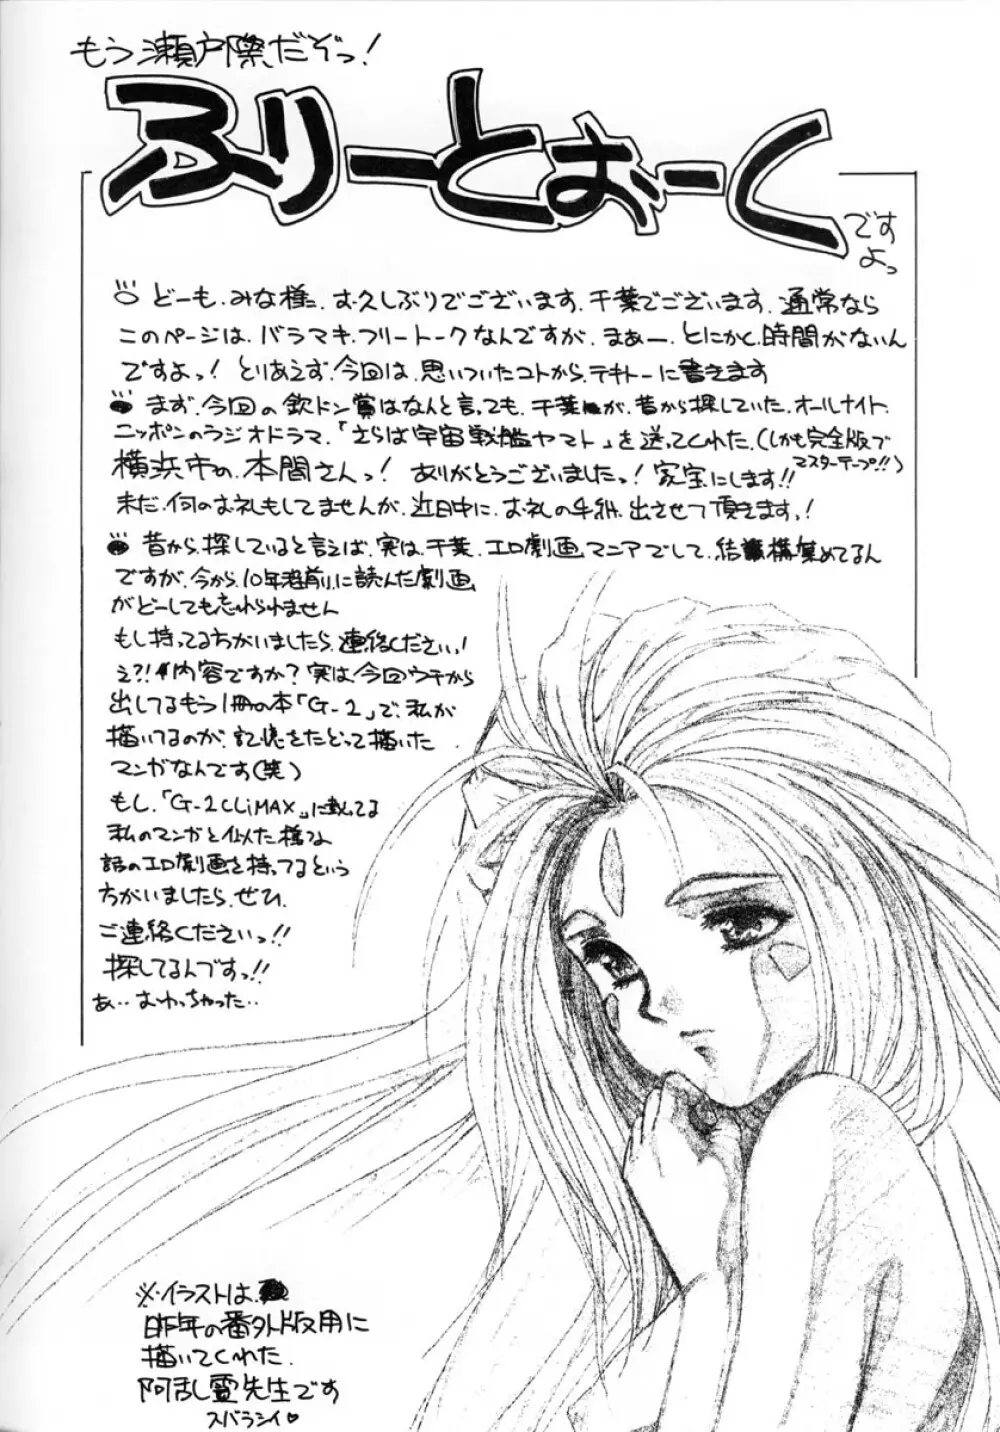 もう瀬戸際だぞっ!
ふりーとおーく
ですよっ
どーも、みな様、お久しぶりでございます、千葉でございます、通常なら
このページは、バラマキ、フリートークなんですが、まぁー、とにかく、時間がないん
ですよっ! とりあえず、今回は、思いついたコトから、テキトーに書きます
まず、今回の欽ドン賞はなんと言っても、千葉が、昔から探していた、オールナイト
ニッポンのラジオドラマ、「さらば宇宙戦艦ヤマト」を送ってくれた、(しかも完全版で
マスターテープ!!)
横浜市の、本間さんっ! ありがとうございましたっ! 家宝にします!!
まだ、何のお礼もしてませんが、近日中に、お礼の手紙、出させて頂きます!
昔から、探していると言えば、実は、千葉、エロ劇画マニアでして、結構集めてるん
ですが、今から、10年程前に読んだ劇画
がどーしても忘れられません
もし持ってる方がいましたら、連絡ください!
え?!内容ですか?実は、今回ウチから
出してるもう1冊の本「G-2」で、私が
描いてるのが、記憶をたどって描いた
マンガなんです(笑)
もし、「G-2CLiMAX」に載ってる
私のマンガと似た様な
話のエロ劇画を持ってるという
方がいましたら、ぜひ、
ご連絡くださいっ!!
探してるんですっ!!
あ‥おわっちゃった‥
※イラストは、
昨年の番外版用に
描いてくれた、
阿乱霊先生です
スバラシイ♡